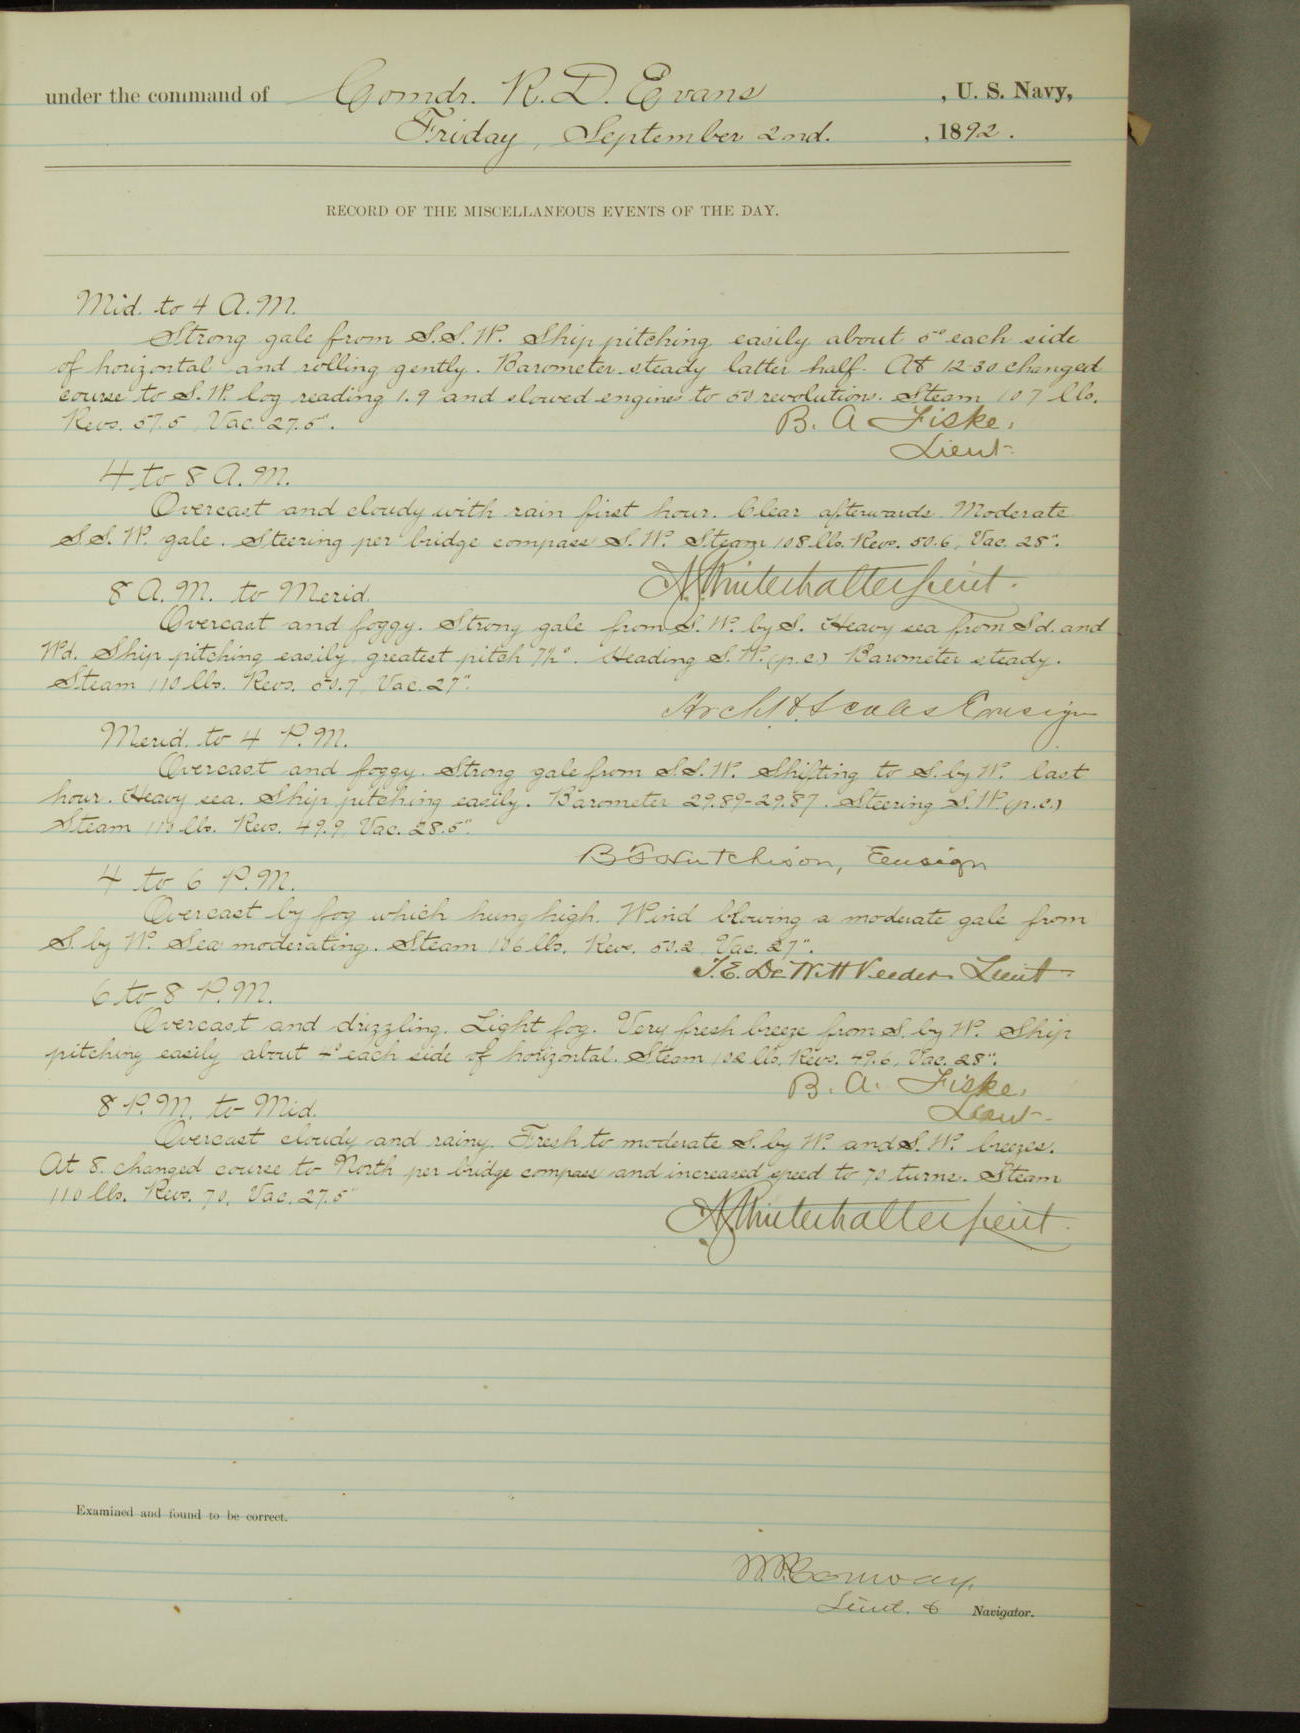 under the command of Comdr. R. D. Evans , U. S. Navy,
Friday, September 2nd. , 1892.
RECORD OF THE MISCELLANEOUS EVENTS OF THE DAY.
Mid. to 4 A.M.
Strong gale from S.S.W. Ship pitching easily about 5° each side
of horizontal and rolling gently. Barometer steady latter half. At 12-30 changed
course to S.W. log reading 1.9 and slowed engines to 50 revolutions. Steam 107 lbs.
Revs. 57.5, Vac. 27.5".
B. A. Fiske,
Lieut.
4 to 8 A.M.
Overcast and cloudy with rain first hour. Clear afterwards. Moderate
S.S.W. gale. Steering per bridge compass S.W. Steam 108 lbs. Revs. 50.6, Vac. 28".
A. Winterhalter Lieut.
8 A.M. to Merid.
Overcast and foggy. Strong gale from S.W. by S. Heavy sea from Sd. and
Wd. Ship pitching easily, greatest pitch 7½°. Heading S.W. (p.c.) Barometer steady.
Steam 110 lbs. Revs. 50.7, Vac. 27".
Archd. H. Scales Ensign
Merid. to 4 P.M.
Overcast and foggy. Strong gale from S.S.W. Shifting to S. by W. last
hour. Heavy sea. Ship pitching easily. Barometer 29.89-29.87. Steering S.W. (p.c.)
Steam 110 lbs. Revs. 49.9, Vac. 28.5".
B F Hutchison, Ensign
4 to 6 P.M.
Overcast by fog which hung high. Wind blowing a moderate gale from
S. by W. Sea moderating. Steam 106 lbs. Revs. 50.2, Vac. 27".
T. E. DeWitt Veeder Lieut
6 to 8 P.M.
Overcast and drizzling. Light fog. Very fresh breeze from S. by W. Ship
pitching easily about 4° each side of horizontal. Steam 102 lbs. Revs. 49.6, Vac. 28".
B. A. Fiske,
Lieut.
8 P.M. to Mid.
Overcast cloudy and rainy. Fresh to moderate S. by W. and S.W. breezes.
At 8. changed course to North per bridge compass and increased speed to 70 turns. Steam
110 lbs. Revs. 70, Vac. 27.5"
A. Winterhalter Lieut.
Examined and found to be correct.
W. P. Conway,
Lieut. & Navigator.